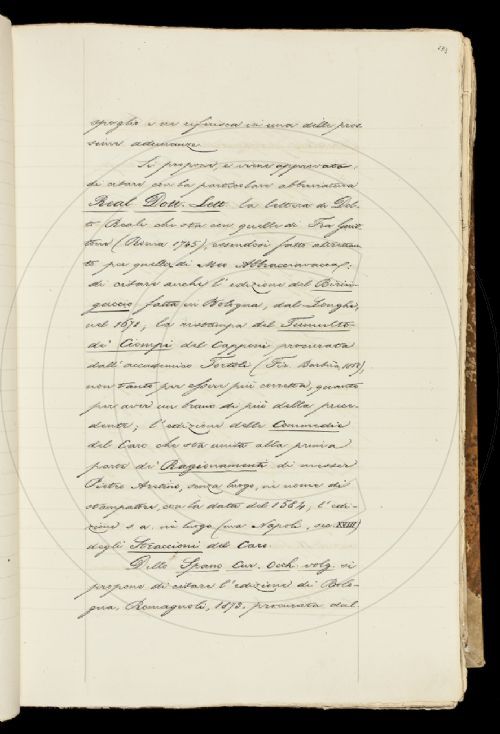 193
spoglio e ne riferisca in una delle pros-
sime adunanze.
Si propone, e viene approvato
di citare con la particolare abbreviatura
Real. Dott. Lett. la lettera di Dot-
to Reali che sta con quelle di Fra Guit-
tone (Roma 1745), essendosi fatto altrettan-
to per quella di Meo Abbracciavacca;
di citare anche l'edizione del Birin-
guccio fatta in Bologna, dal Longhi,
nel 1678; la ristampa del Tumulto
di Ciompi del Capponi procurata
dall'accademico Tortoli (Fir. Barbèra, 1858),
non tanto per esser più corretta, quanto
per aver un brano di più della prece-
dente; l'edizione delle Commedie
del Caro che sta unita alla prima
parte di Ragionamenti di messer
Pietro Aretino, senza luogo, nè nome di
stampatore, con la data del 1584; l'edi-
zione s. a. nè luogo (ma Napoli, sec. XVIII)
degli Straccioni del Caro.
Dello Spano Cur. Occh. volg. si
propone di citare l'edizione di Bolo-
gna, Romagnoli, 1873. procurata dal